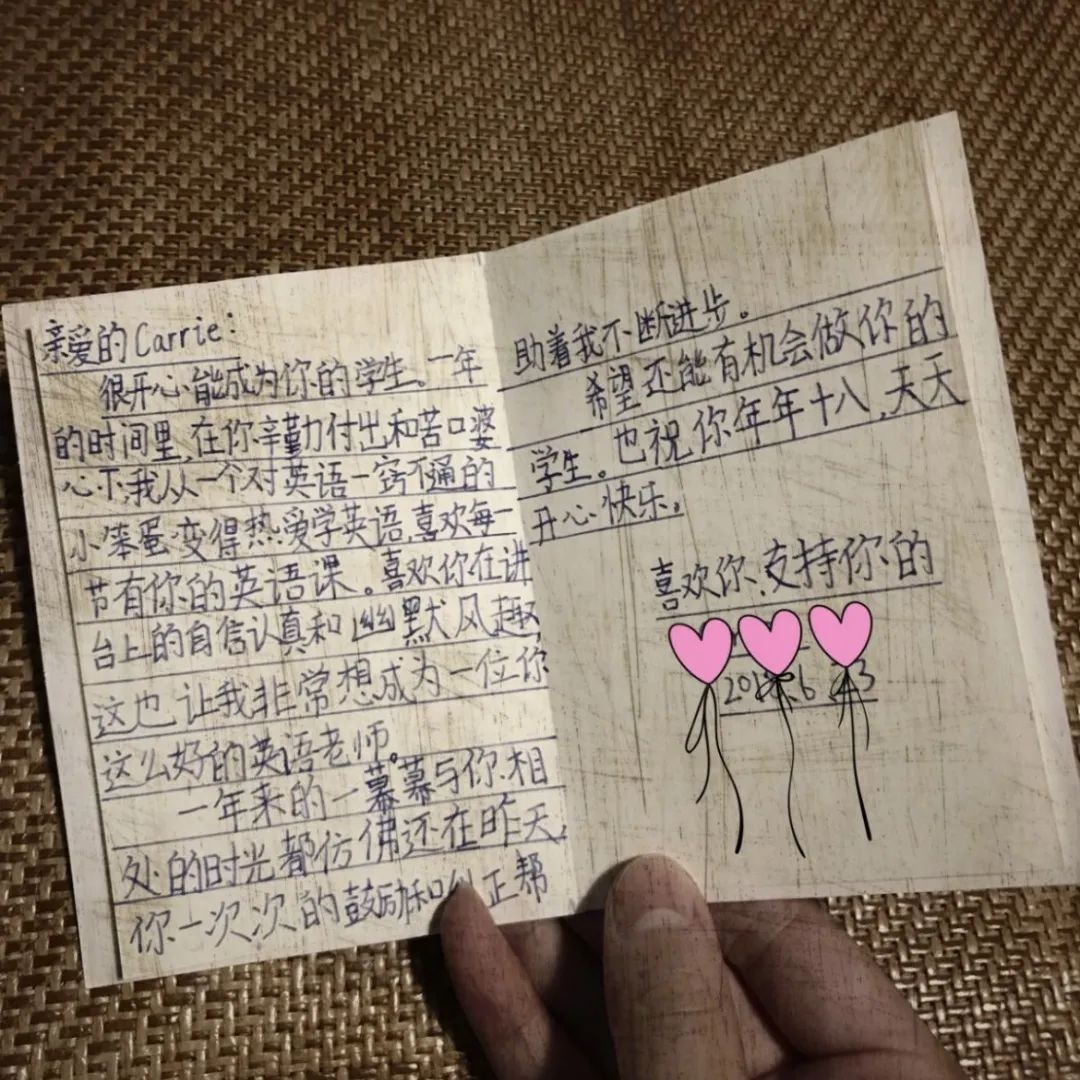 亲爱的Carrie:
很开心能成为你的学生。一年
的时间里,在你辛勤付出和苦口婆
心下,我从一个对英语一窍不通的
小笨蛋变得热爱学英语,喜欢每一
节有你的英语课。喜欢你在讲
台上的自信认真和幽默风趣,
这也让我非常想成为一位你
这么好的英语老师。
一年来的一幕幕与你相
处的时光都仿佛还在昨天,
你一次次的鼓励和纠正帮
助着我不断进步。
希望还能有机会做你的
学生。也祝你年年十八,天天
开心快乐。
喜欢你、支持你的